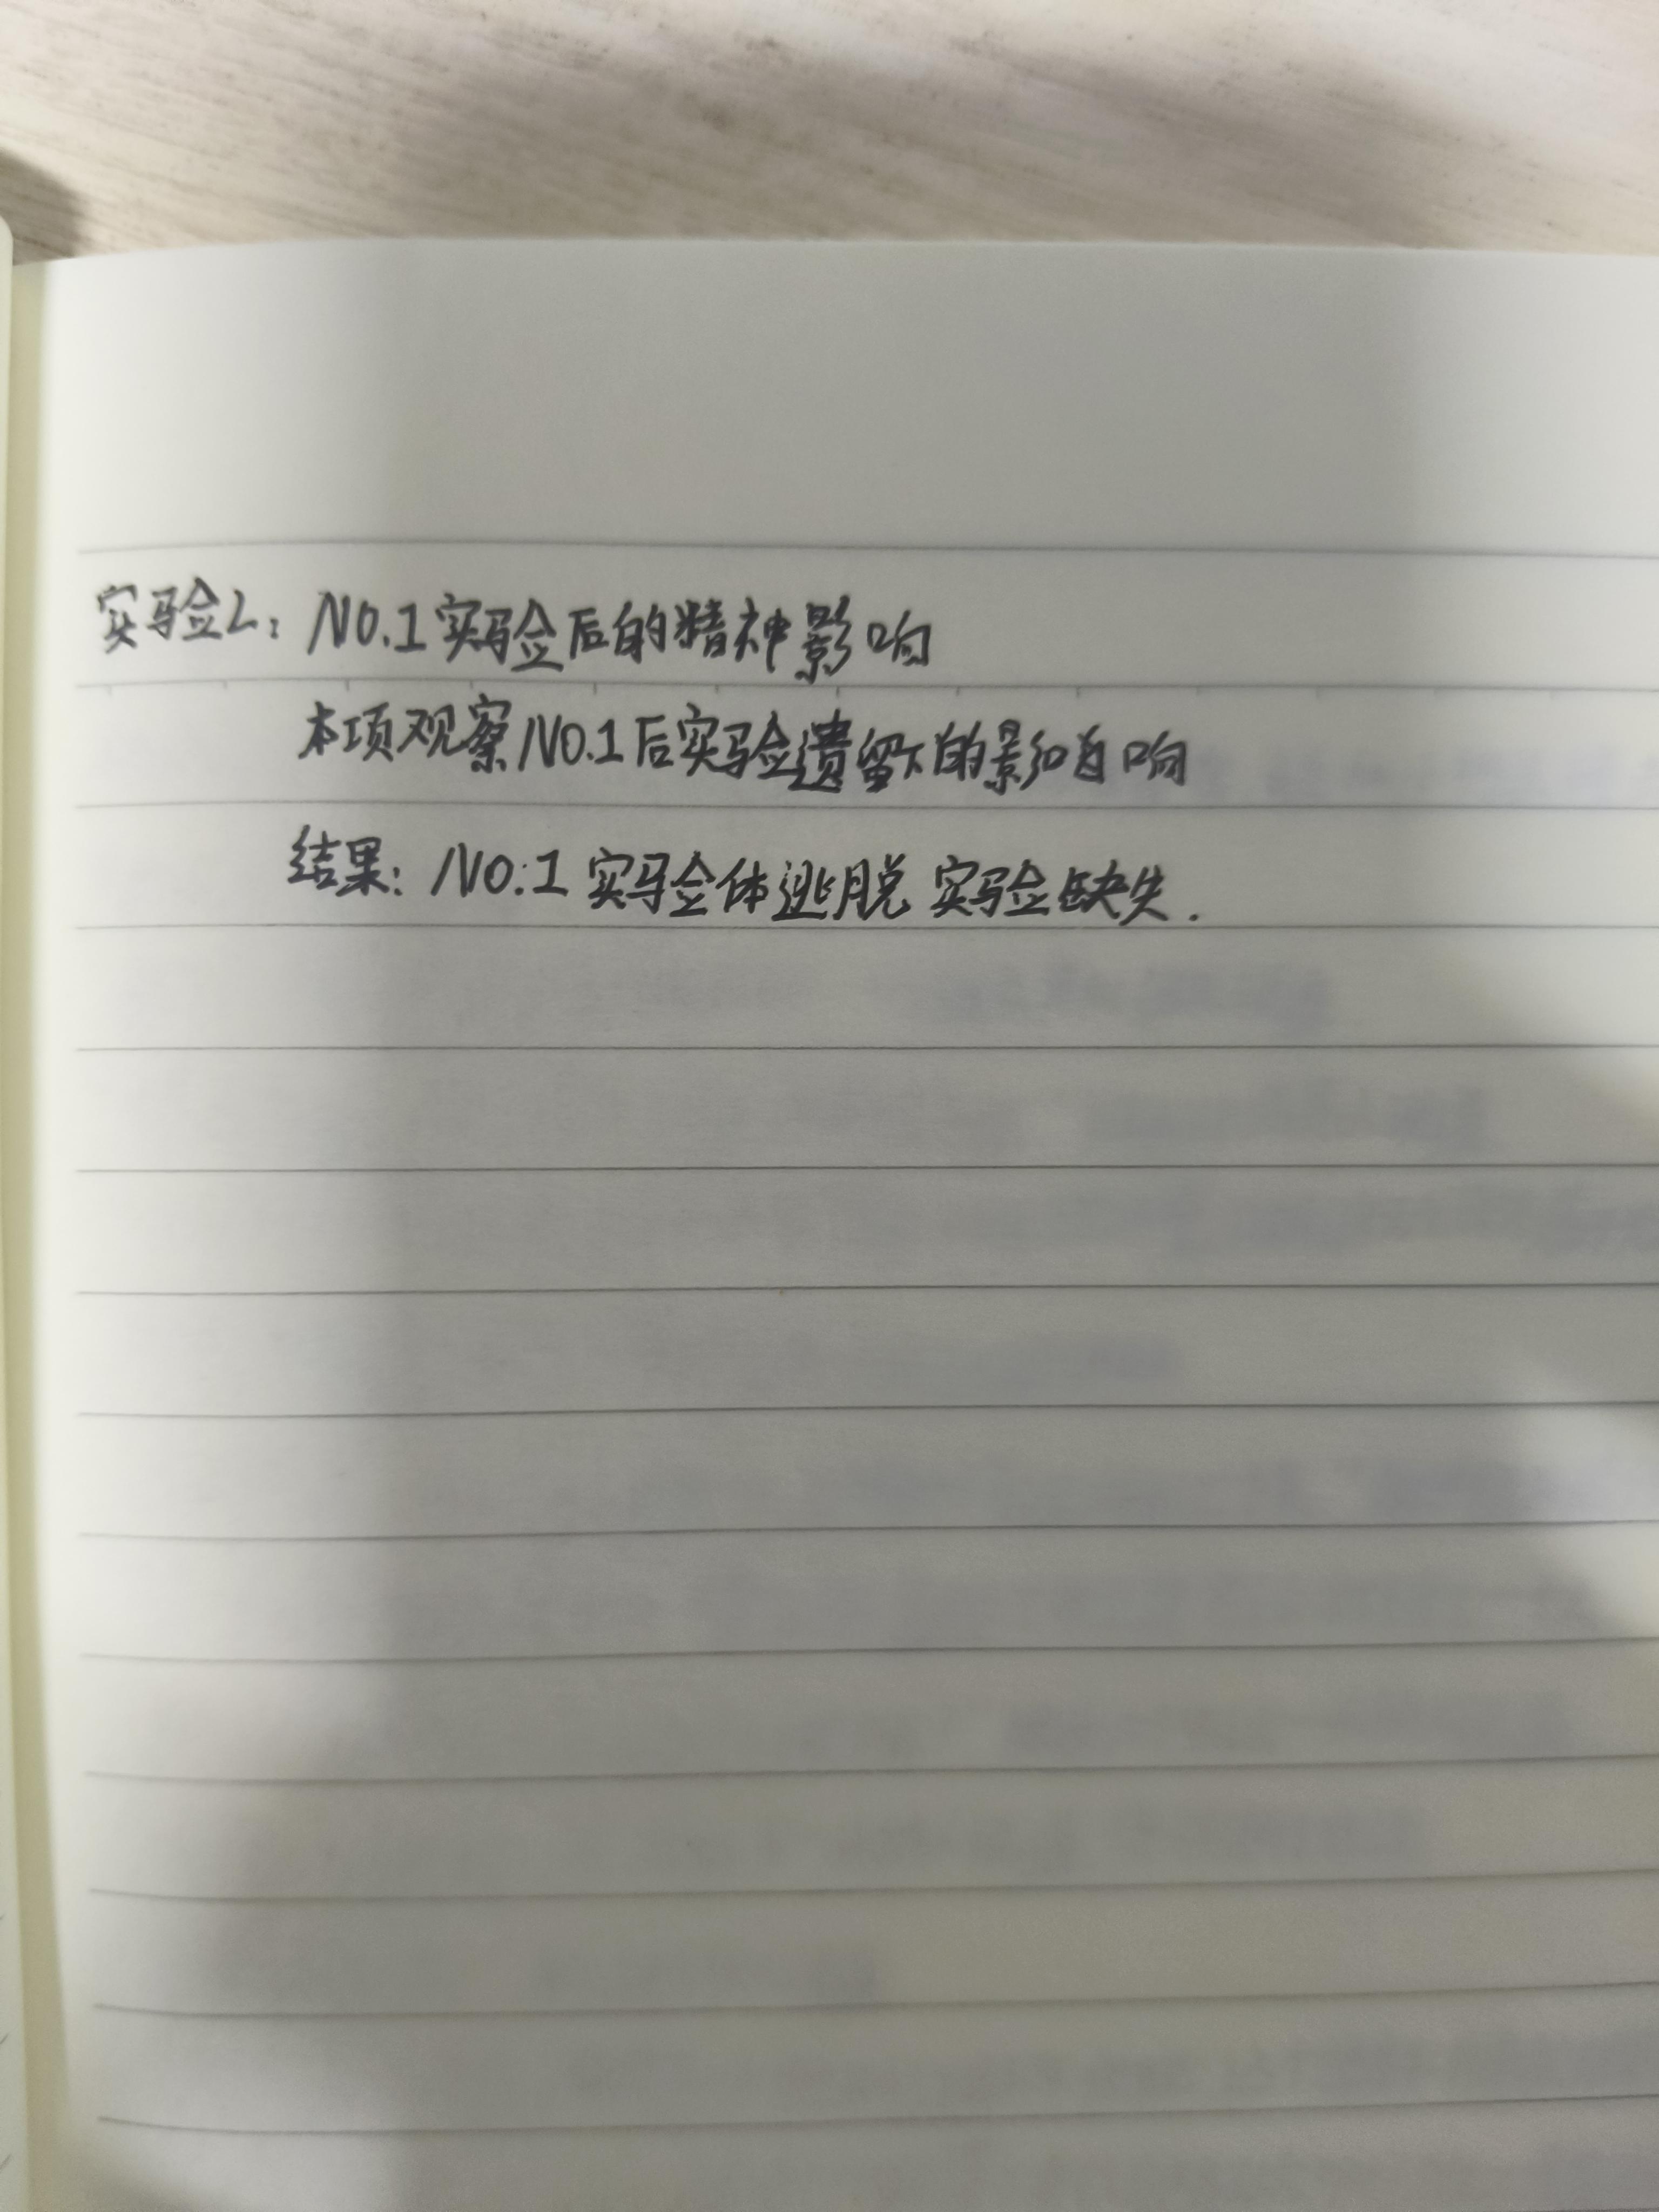 实验2：NO.1实验后的精神影响
本项观察NO.1后实验遗留下的影响
结果：NO.1实验体逃脱 实验缺失.